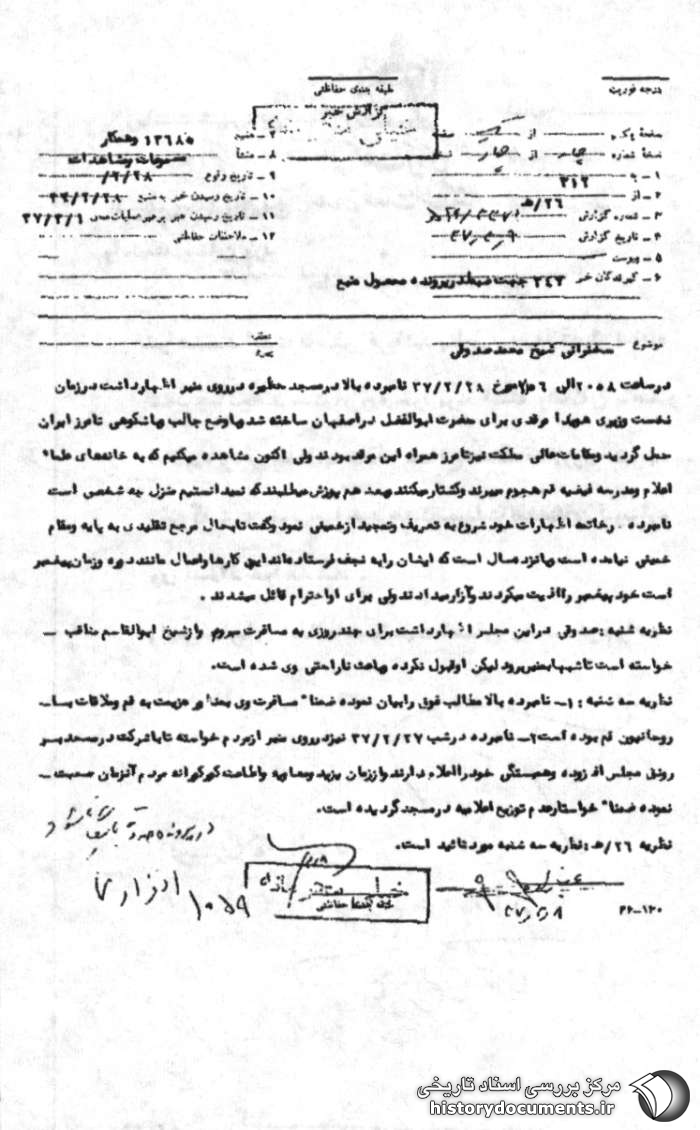 درجه فوریت
طبقه بندی حفاظتی
گزارش خبر
خیلی محرمانه
صفحه یک از یک صفحه
نسخه شماره چهار از چهار نسخه
۱ـ به ۳۱۲
۲ـ از ۲۶/ه
۳ـ شماره گزارش
۴ـ تاریخ گزارش
۵ـ پیوست
۶ـ گیرندگان خبر ۲۴۳ جهت ضبط در پرونده محصول منبع
۷ـ منبع ۱۲۶۸۵ و همکار
۸ـ منشأ مسموعات و مشاهدات
۹ـ تاریخ وقوع ۲/۲۸/
۱۰ـ تاریخ رسیدن خبر به منبع ۳۷/۲/۲۸
۱۱ـ تاریخ رسیدن خبر به رهبر عملیات محل ۳۷/۳/۱
۱۲ـ ملاحظات حفاظتی
موضوع سخنرانی شیخ محمد صدوقی
در ساعت ۲۰۰۸ الی مورخ ۳۷/۲/۲۸ نامبرده بالا در مسجد حظیره در روی منبر اظهار داشت در زمان
نخست وزیری هویدا مرقدی برای حضرت ابوالفضل در اصفهان ساخته شد و با وضع جالب و باشکوهی تا مرز ایران
حمل گردید و مقامات عالی مملکت نیز تا مرز همراه این مرقد بودند ولی اکنون مشاهده میکنیم که به خانه‌های علماء
اعلام و مدرسه فیضیه قم هجوم میبرند و کشتار میکنند و بعد هم پوزش میطلبند که نمیدانستیم منزل چه شخصی است
نامبرده در خاتمه اظهارات خود شروع به تعریف و تمجید از خمینی نمود و گفت تا بحال مرجع تقلیدی به پایه و مقام
خمینی نیامده است و پانزده سال است که ایشان را به نجف فرستاده‌اند این کارها و اعمال مانند دوره و زمان پیغمبر
است خود پیغمبر را اذیت میکردند و آزار میدادند ولی برای او احترام قائل میشدند .
نظریه شنبه : صدوقی در این مجلس اظهار داشت برای چند روزی به مسافرت میروم و از شیخ ابوالقاسم مناقب ـ
خواسته است تا شبها به منبر برود لیکن او قبول نکرده و باعث ناراحتی وی شده است.
نظریه سه شنبه : ۱ـ نامبرده بالا مطالب فوق را بیان نموده ضمناً مسافرت وی بعداً بر عزیمت به قم و ملاقات بسا ـ
روحانیون قم بوده است ۲ـ نامبرده در شب ۳۷/۲/۲۷ نیز در روی منبر از مردم خواسته تا با شرکت در مسجد بسر
رونق مجلس افزوده و همبستگی خود را اعلام دارند و از زمان یزید و معاویه و اطاعت کورکورانه مردم آنزمان صحبت ـ
نموده ضمناً خواستار عدم توزیع اعلامیه در مسجد گردیده است.
نظریه ۲۶/ه : نظریه سه شنبه مورد تائید است.
خیلی محرمانه
طبقه بندی حفاظتی
۲۶-۱۳۰
مرکز بررسی اسناد تاریخی
historydocuments.ir